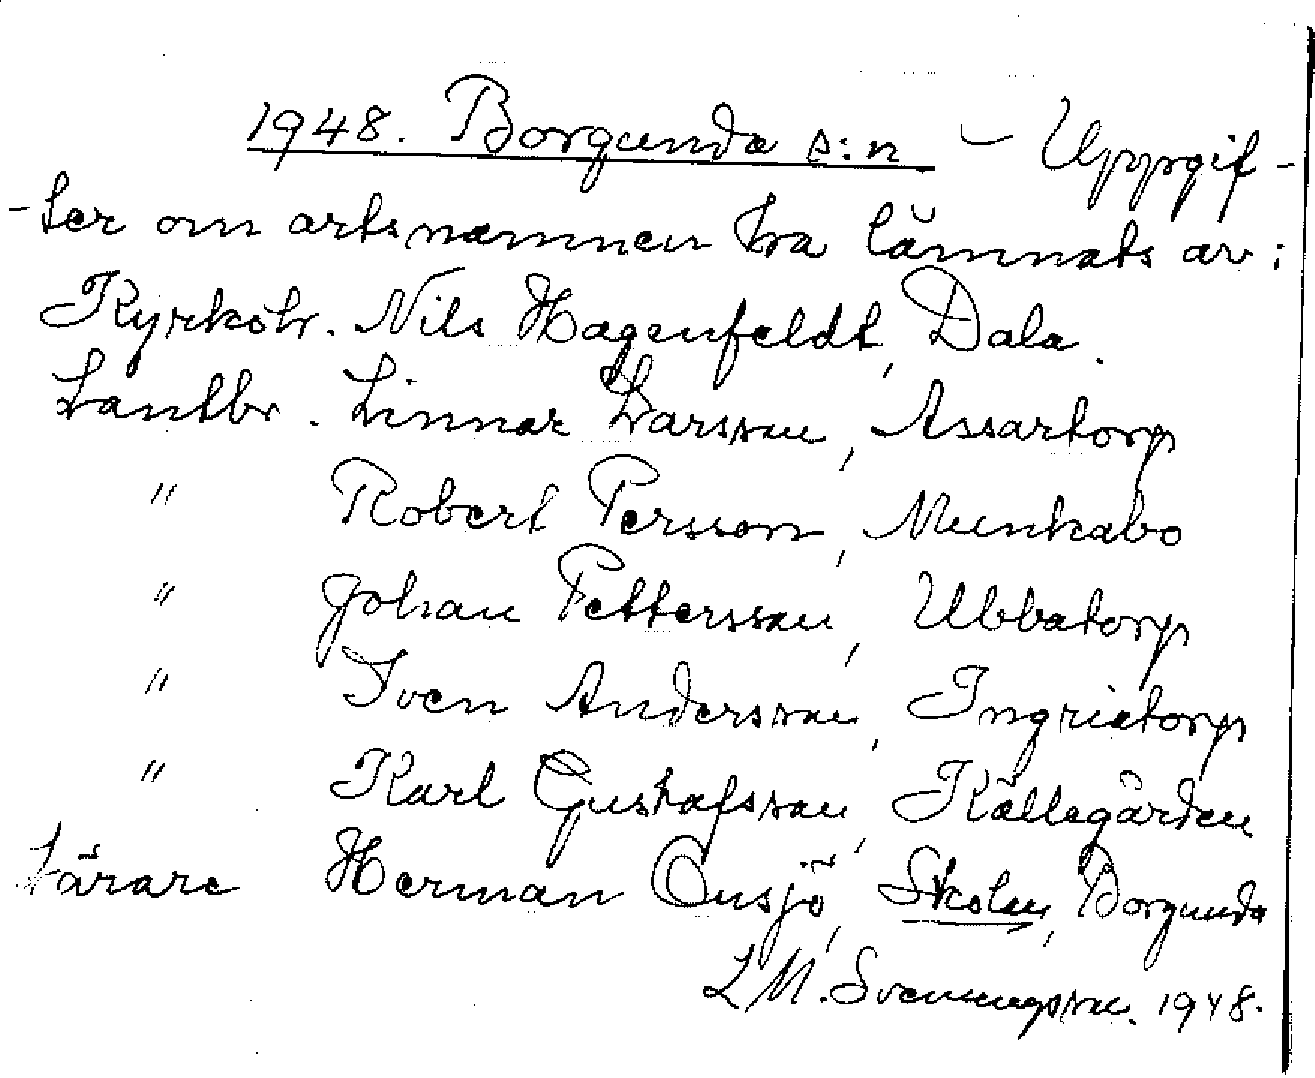 1948. Borgunda s:n – Uppgif-
-ter om ortsnamnen ha lämnats av:
Kyrkohr. Nils Hagenfeldt, Dala.
Lantbr. Linnar Larsson, Assartorp
" Robert Persson, Munkabo
" Johan Pettersson, Ubbatorp
" Sven Andersson, Ingrietorp
" Karl Gustafsson, Källegården
Lärare Herman Onsjö, Skolen, Borgunda
L M. Svenungsson. 1948.